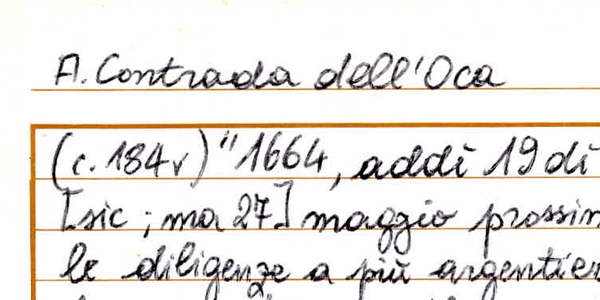 A. Contrada dell'Oca
(c. 184v) "1664, addì 19 di
[sic; ma 27] maggio prossim
le diligenze a più argentier